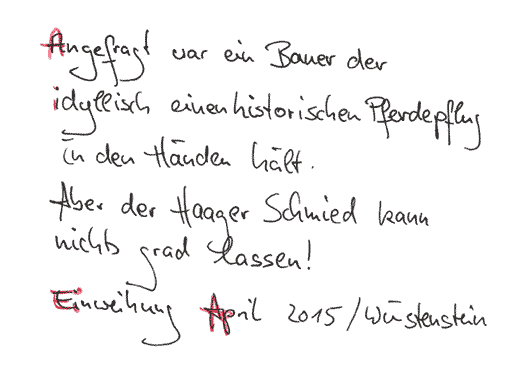 Angefragt war ein Bauer der
idyllisch einen historischen Pferdepflug
in den Händen hält.
Aber der Haager Schmied kann
nichts grad lassen!
Einweihung April 2015/Wüstenstein